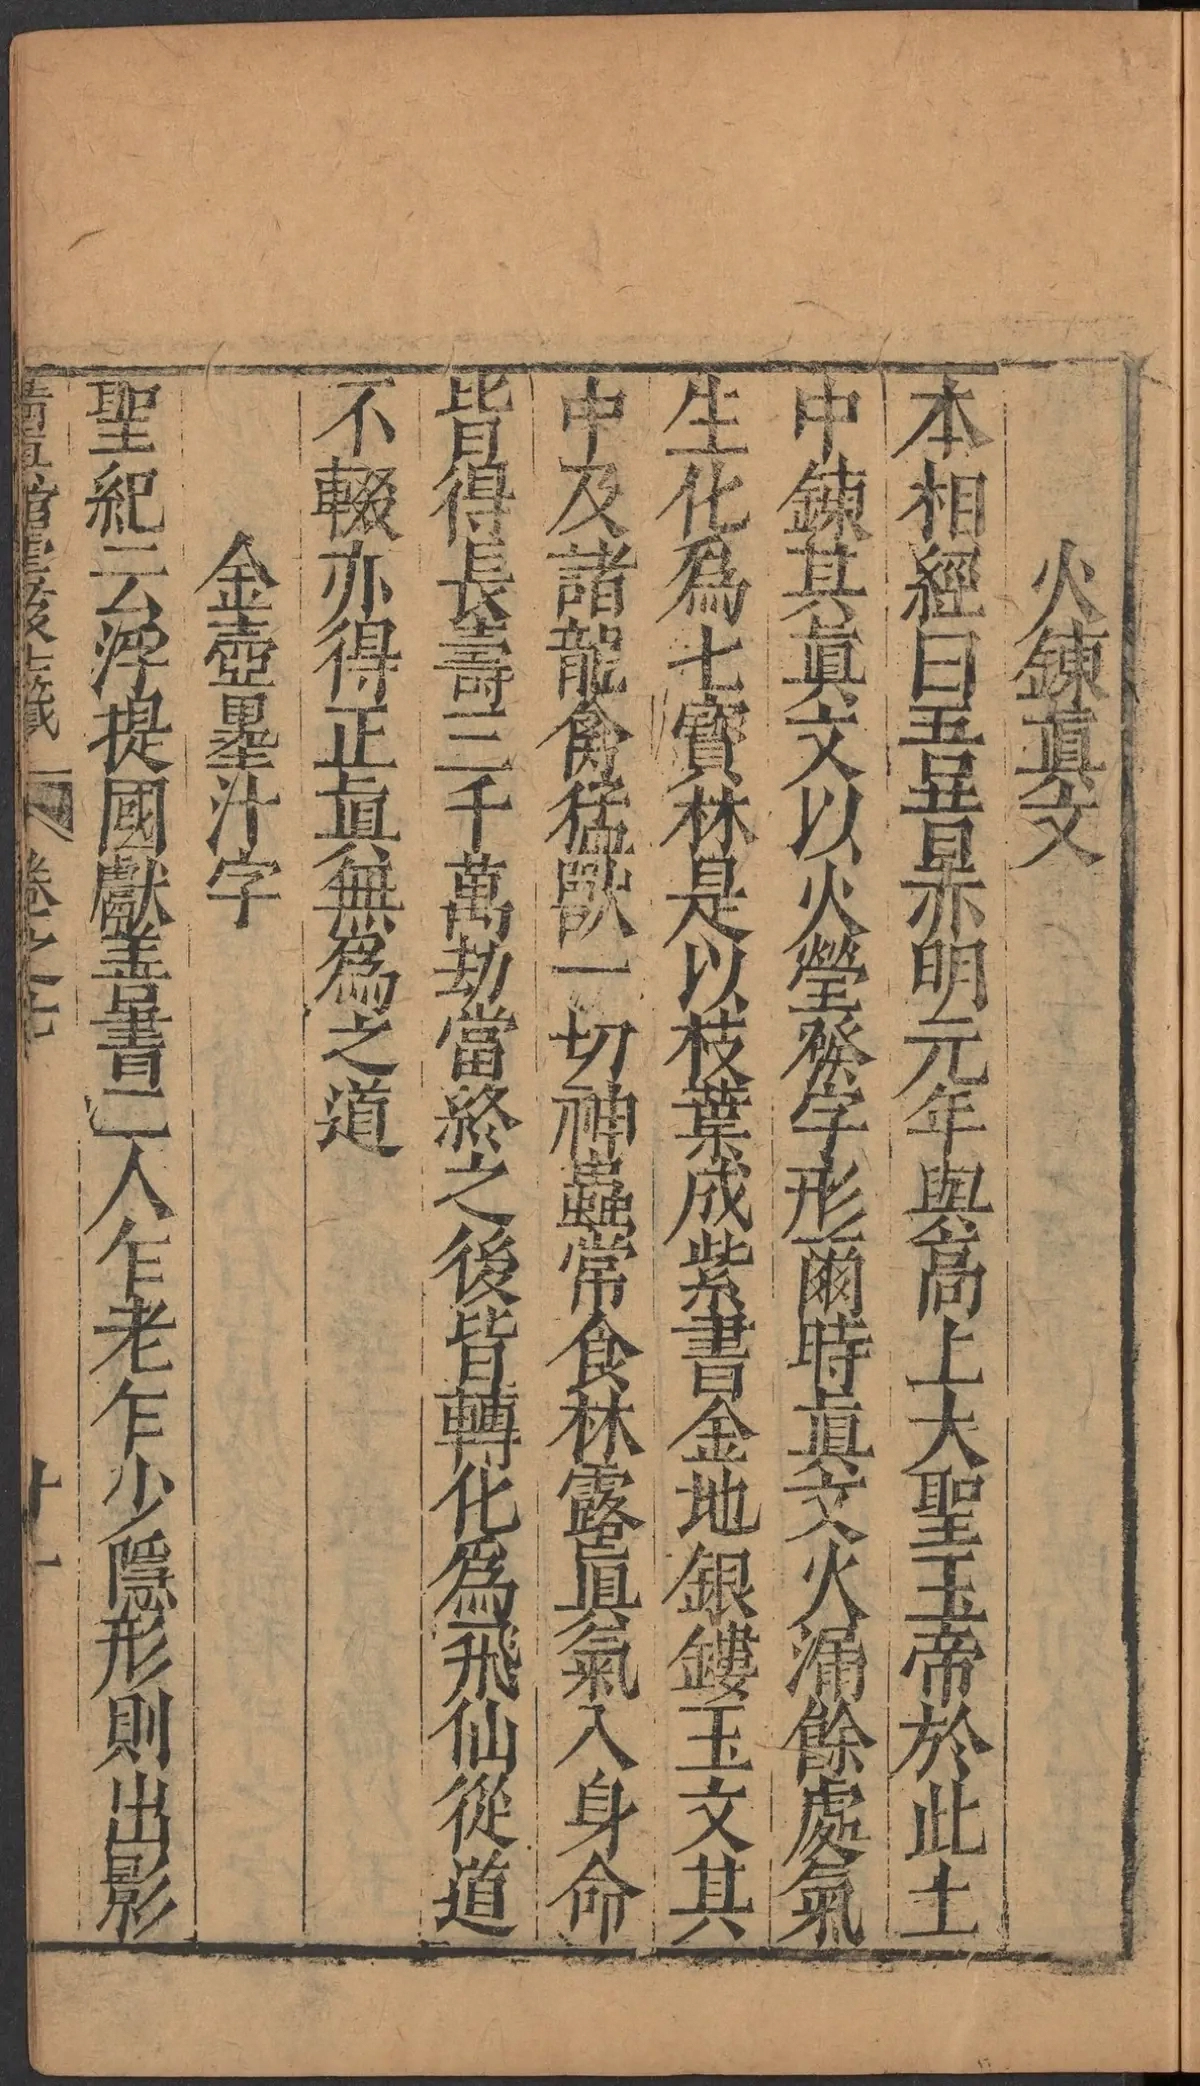 火鍊眞文
本相經曰吾昔赤明元年與高上大聖玉帝於此土
中鍊其眞文以火瑩發字形爾時眞文火漏餘處氣
生化爲七寶林是以枝葉成紫書金地銀鏤玉文其
中及諸龍禽猛獸一切神蟲常食林露眞氣入身命
皆得長壽三千萬劫當終之後皆轉化爲飛仙從道
不輟亦得正眞無爲之道
金壺墨汁字
聖紀云浮提國獻善書二人乍老乍少隱形則出影
清眞館雲笈七籤 卷之七 十一